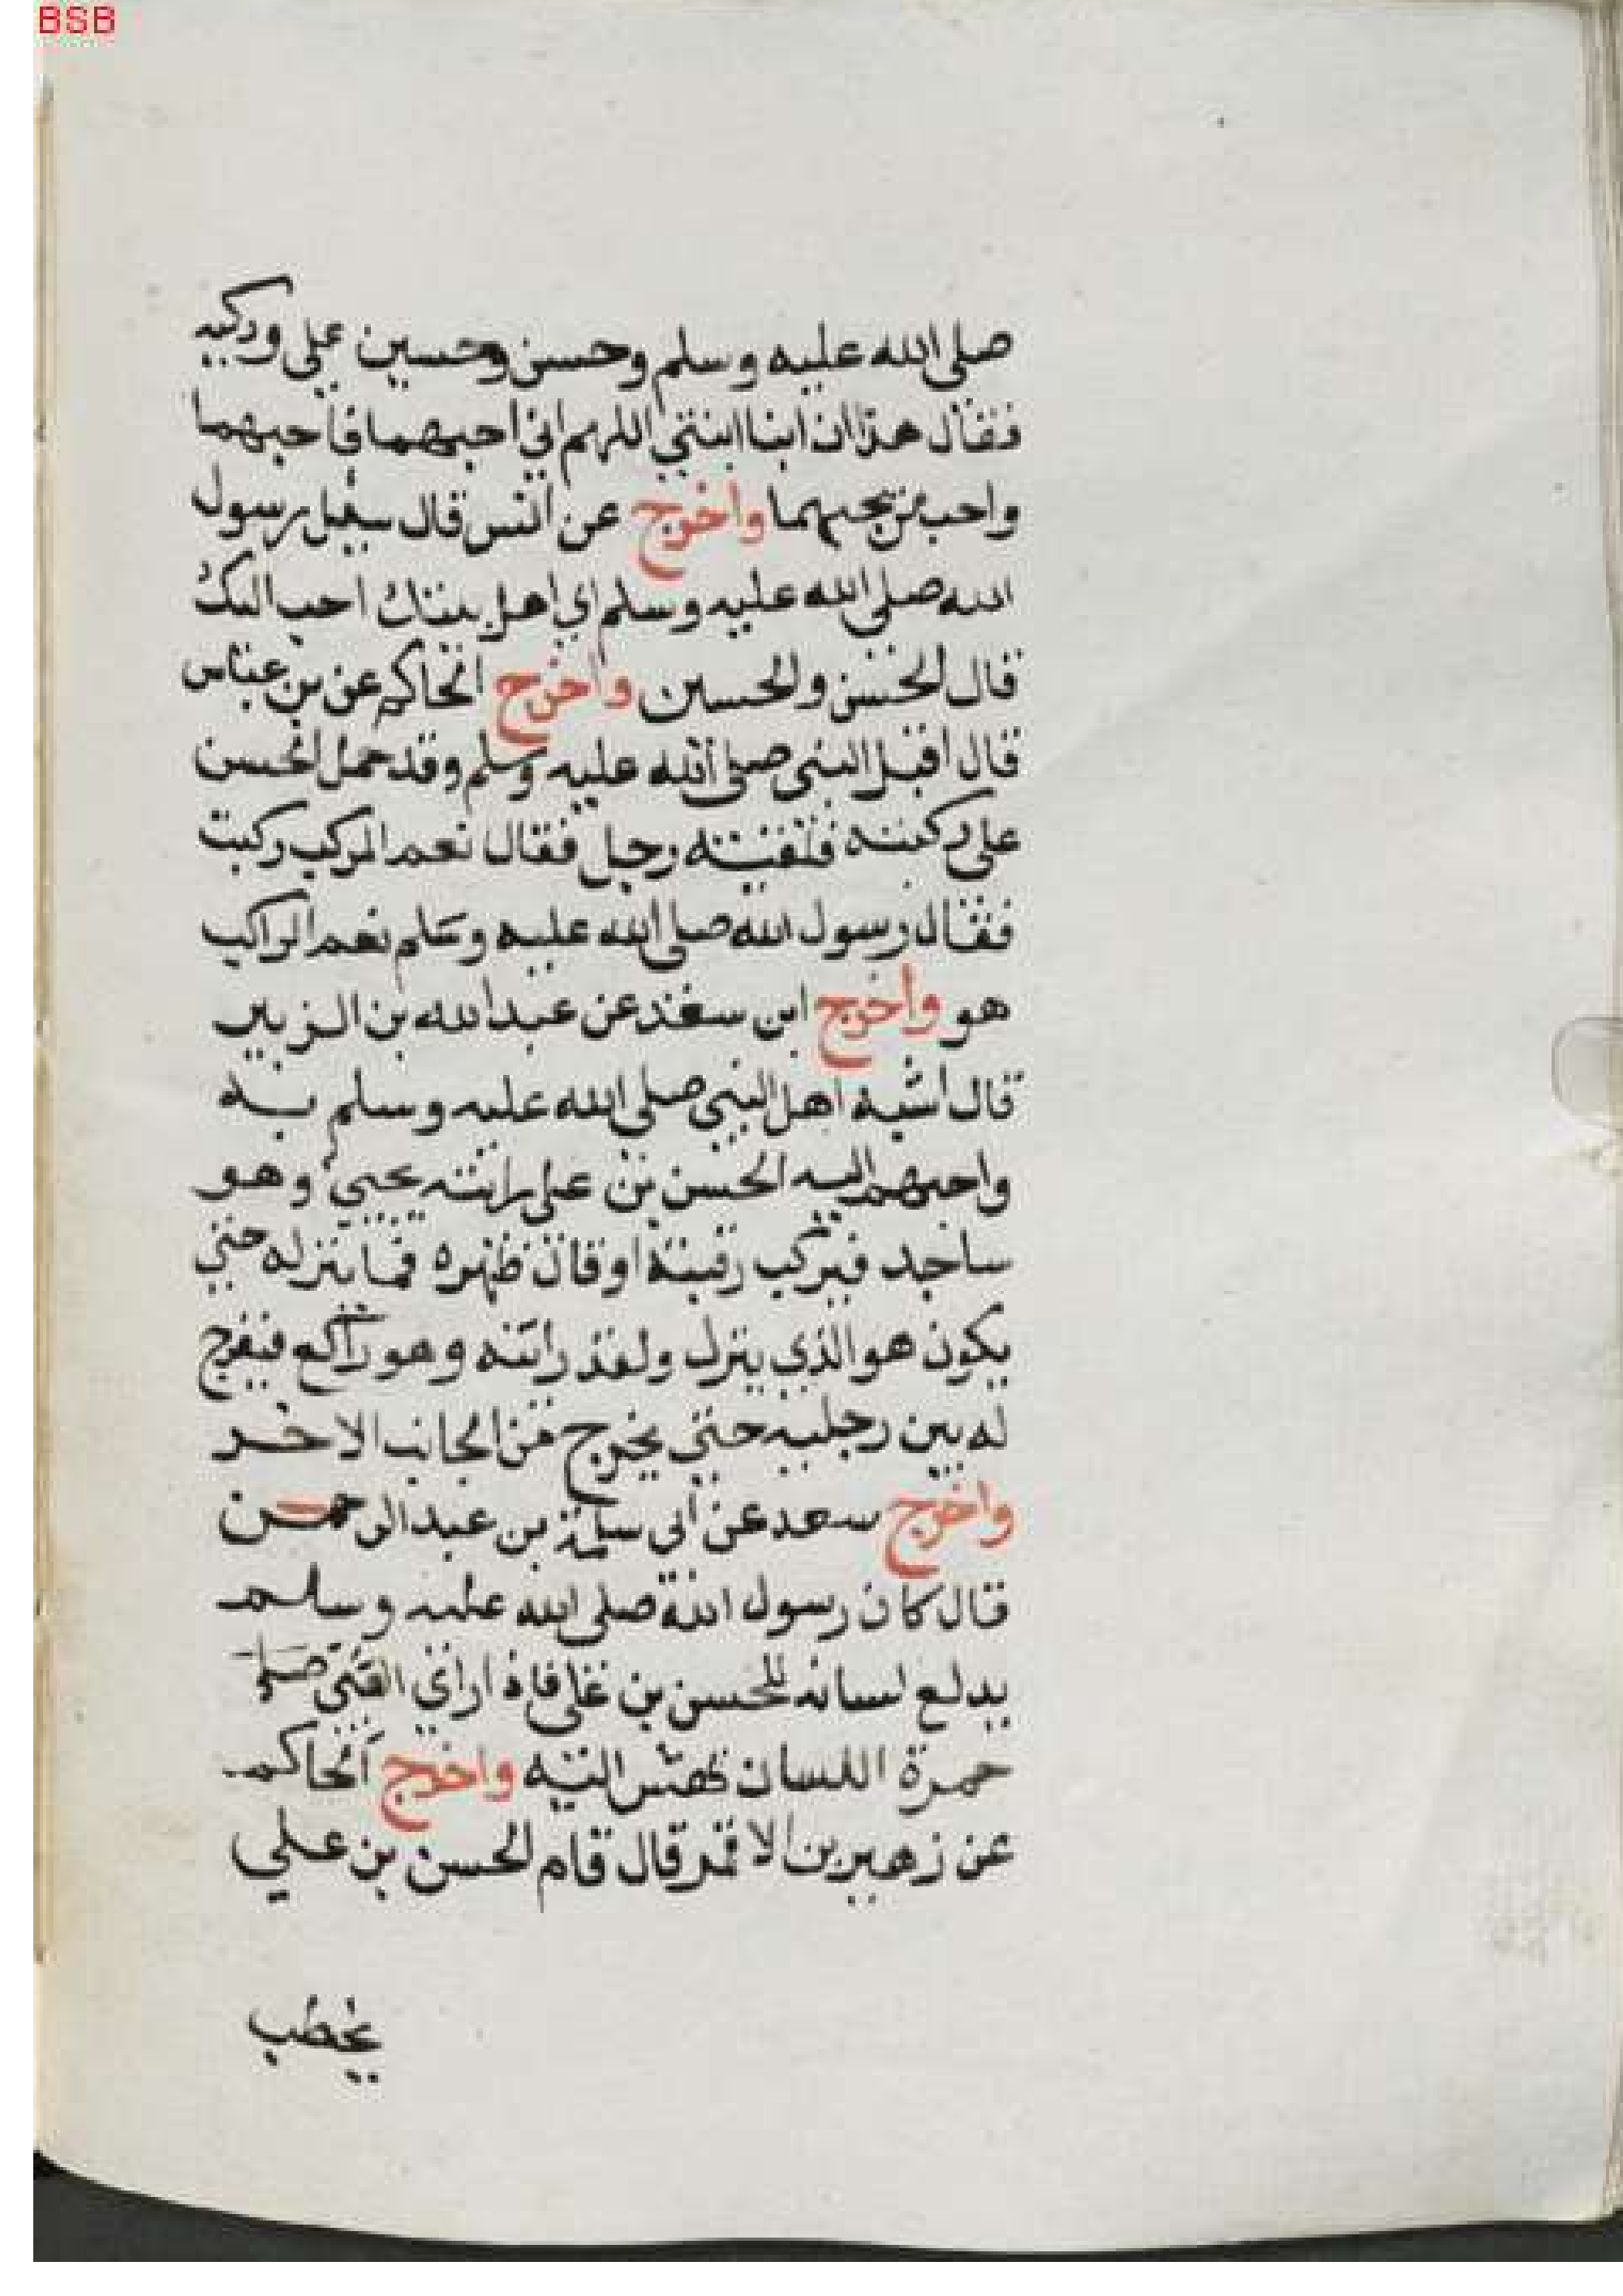 BSB
صلى الله عليه وسلم وحسن وحسين على وركيه
فقال هذان ابنا ابنتي اللهم اني احبهما فاحبهما
واحب من يحبهما واخرج عن انس قال سئل رسول
الله صلى الله عليه وسلم اي اهل بيتك احب اليك
قال الحسن والحسين واخرج الحاكم عن بن عباس
قال اقبل النبي صلى الله عليه وسلم وقد حمل الحسن
على ركبته فلقيته رجل فقال نعم المركب ركبت
فقال رسول الله صلى الله عليه وسلم نعم الراكب
هو واخرج ابن سعد عن عبد الله بن الزبير
قال اشبه اهل النبي صلى الله عليه وسلم به
واحبهم اليه الحسن بن على رايته يجيئ وهو
ساجد فيركب رقبته او قال ظهره فما ينزله حتي
يكون هو الذي ينزل ولقد رايته وهو راكع فيفرج
له بين رجليه حتي يخرج من الجانب الاخر
واخرج سعد عن ابي سلمة بن عبد الرحمن
قال كان رسول الله صلى الله عليه وسلم
يدلع لسانه للحسن بن علي فاذا راي
حمرة اللسان اليه واخرج الحاكم
عن زهير بن الاقمر قال قام الحسن بن علي
يخطب